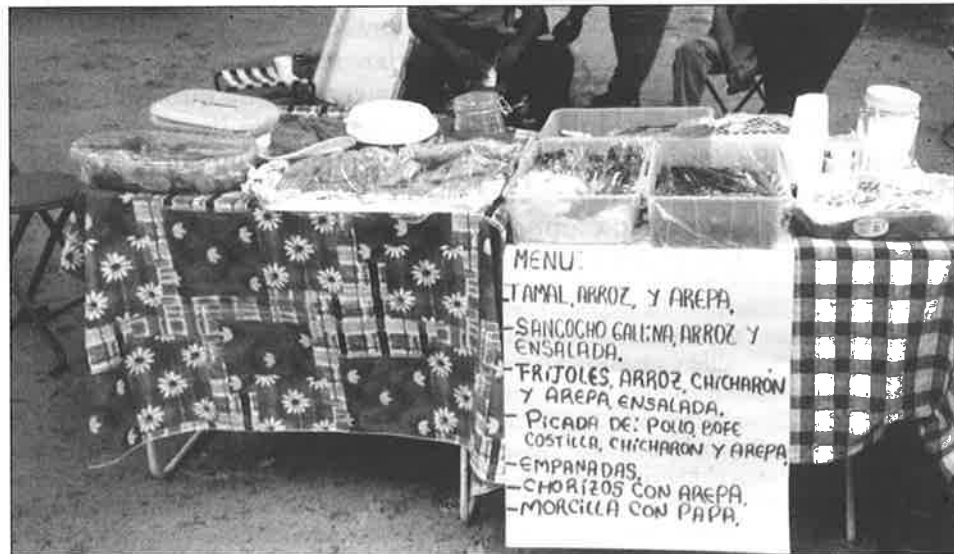 MENU:
-TAMAL, ARROZ, Y AREPA.
-SANCOCHO GALLINA, ARROZ Y
ENSALADA.
-FRIJOLES, ARROZ, CHICHARÓN
Y AREPA, ENSALADA.
-PICADA DE: POLLO, BOFE
COSTILLA, CHICHARON Y AREPA.
-EMPANADAS.
-CHORIZOS CON AREPA.
-MORCILLA CON PAPA.